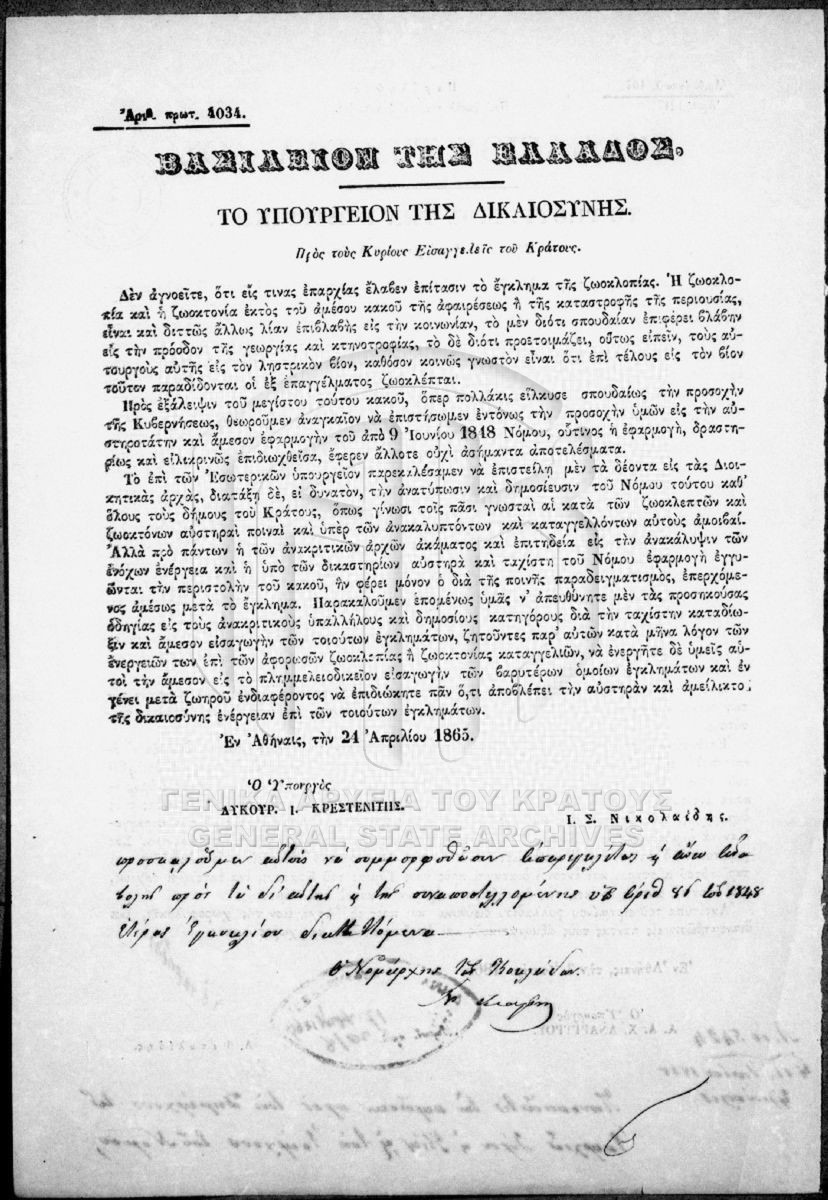 Ἀριθ. πρωτ. 4034.
ΒΑΣΙΛΕΙΟΝ ΤΗΣ ΕΛΛΑΔΟΣ.
ΤΟ ΥΠΟΥΡΓΕΙΟΝ ΤΗΣ ΔΙΚΑΙΟΣΥΝΗΣ.
Πρὸς τοὺς Κυρίους Εἰσαγγελεῖς τοῦ Κράτους.
Δὲν ἀγνοεῖτε, ὅτι εἴς τινας ἐπαρχίας ἔλαβεν ἐπίτασιν τὸ ἔγκλημα τῆς ζωοκλοπίας. Ἡ ζωοκλο-
πία καὶ ἡ ζωοκτονία ἐκτὸς τοῦ ἀμέσου κακοῦ τῆς ἀφαιρέσεως ἢ τῆς καταστροφῆς τῆς περιουσίας,
εἶναι καὶ διττῶς ἄλλως λίαν ἐπιβλαβὴς εἰς τὴν κοινωνίαν, τὸ μὲν διότι σπουδαίαν ἐπιφέρει βλάβην
εἰς τὴν πρόοδον τῆς γεωργίας καὶ κτηνοτροφίας, τὸ δὲ διότι προετοιμάζει, οὕτως εἰπεῖν, τοὺς αὐ-
τουργοὺς αὐτῆς εἰς τὸν λῃστρικὸν βίον, καθόσον κοινῶς γνωστὸν εἶναι ὅτι ἐπὶ τέλους εἰς τὸν βίον
τοῦτον παραδίδονται οἱ ἐξ ἐπαγγέλματος ζωοκλέπται.
Πρὸς ἐξάλειψιν τοῦ μεγίστου τούτου κακοῦ, ὅπερ πολλάκις εἵλκυσε σπουδαίως τὴν προσοχὴν
τῆς Κυβερνήσεως, θεωροῦμεν ἀναγκαῖον νὰ ἐπιστήσωμεν ἐντόνως τὴν προσοχὴν ὑμῶν εἰς τὴν αὐ-
στηροτάτην καὶ ἄμεσον ἐφαρμογὴν τοῦ ἀπὸ 9 Ἰουνίου 1848 Νόμου, οὗτινος ἡ ἐφαρμογή, δραστη-
ρίως καὶ εἰλικρινῶς ἐπιδιωχθεῖσα, ἔφερεν ἄλλοτε οὐχὶ ἀσήμαντα ἀποτελέσματα.
Τὸ ἐπὶ τῶν Ἐσωτερικῶν ὑπουργεῖον παρεκαλέσαμεν νὰ ἐπιστείλῃ μὲν τὰ δέοντα εἰς τὰς Διοι-
κητικὰς ἀρχάς, διατάξῃ δέ, εἰ δυνατόν, τὴν ἀνατύπωσιν καὶ δημοσίευσιν τοῦ Νόμου τούτου καθ'
ὅλους τοὺς δήμους τοῦ Κράτους, ὅπως γίνωσι τοῖς πᾶσι γνωσταὶ αἱ κατὰ τῶν ζωοκλεπτῶν καὶ
ζωοκτόνων αὐστηραὶ ποιναὶ καὶ ὑπὲρ τῶν ἀνακαλυπτόντων καὶ καταγγελλόντων αὐτοὺς ἀμοιβαί.
Ἀλλὰ πρὸ πάντων ἡ τῶν ἀνακριτικῶν ἀρχῶν ἀκάματος καὶ ἐπιτηδεία εἰς τὴν ἀνακάλυψιν τῶν
ἐνόχων ἐνέργεια καὶ ἡ ὑπὸ τῶν δικαστηρίων αὐστηρὰ καὶ ταχίστη τοῦ Νόμου ἐφαρμογὴ ἐγγυ-
ῶνται τὴν περιστολὴν τοῦ κακοῦ, ἣν φέρει μόνον ὁ διὰ τῆς ποινῆς παραδειγματισμός, ἐπερχόμε-
νος ἀμέσως μετὰ τὸ ἔγκλημα. Παρακαλοῦμεν ἑπομένως ὑμᾶς ν' ἀπευθύνητε μὲν τὰς προσηκούσας
ὁδηγίας εἰς τοὺς ἀνακριτικοὺς ὑπαλλήλους καὶ δημοσίους κατηγόρους διὰ τὴν ταχίστην καταδίω-
ξιν καὶ ἄμεσον εἰσαγωγὴν τῶν τοιούτων ἐγκλημάτων, ζητοῦντες παρ' αὐτῶν κατὰ μῆνα λόγον τῶν
ἐνεργειῶν των ἐπὶ τῶν ἀφορωσῶν ζωοκλοπίας ἢ ζωοκτονίας καταγγελιῶν, νὰ ἐνεργῆτε δὲ ὑμεῖς αὐ-
τοὶ τὴν ἄμεσον εἰς τὸ πλημμελειοδικεῖον εἰσαγωγὴν τῶν βαρυτέρων ὁμοίων ἐγκλημάτων καὶ ἐν
γένει μετὰ ζωηροῦ ἐνδιαφέροντος νὰ ἐπιδιώκητε πᾶν ὅ,τι ἀποβλέπει τὴν αὐστηρὰν καὶ ἀμείλικτο
τῆς δικαιοσύνης ἐνέργειαν ἐπὶ τῶν τοιούτων ἐγκλημάτων.
Ἐν Ἀθήναις, τὴν 24 Ἀπριλίου 1865.
Ὁ Ὑπουργὸς
ΛΥΚΟΥΡ. Ι. ΚΡΕΣΤΕΝΙΤΗΣ.
Ι. Σ. Νικολαΐδης.
ΓΕΝΙΚΑ ΑΡΧΕΙΑ ΤΟΥ ΚΡΑΤΟΥΣ
GENERAL STATE ARCHIVES
προσκαλοῦμεν αὐτοὺς νὰ συμμορφωθῶσιν
πρὸς τὰ δι' αὐτῆς τῆς συναποστελλομένης ὑπ' ἀριθ 86 τοῦ 1848
ἐγκυκλίου
Ὁ Νομάρχης